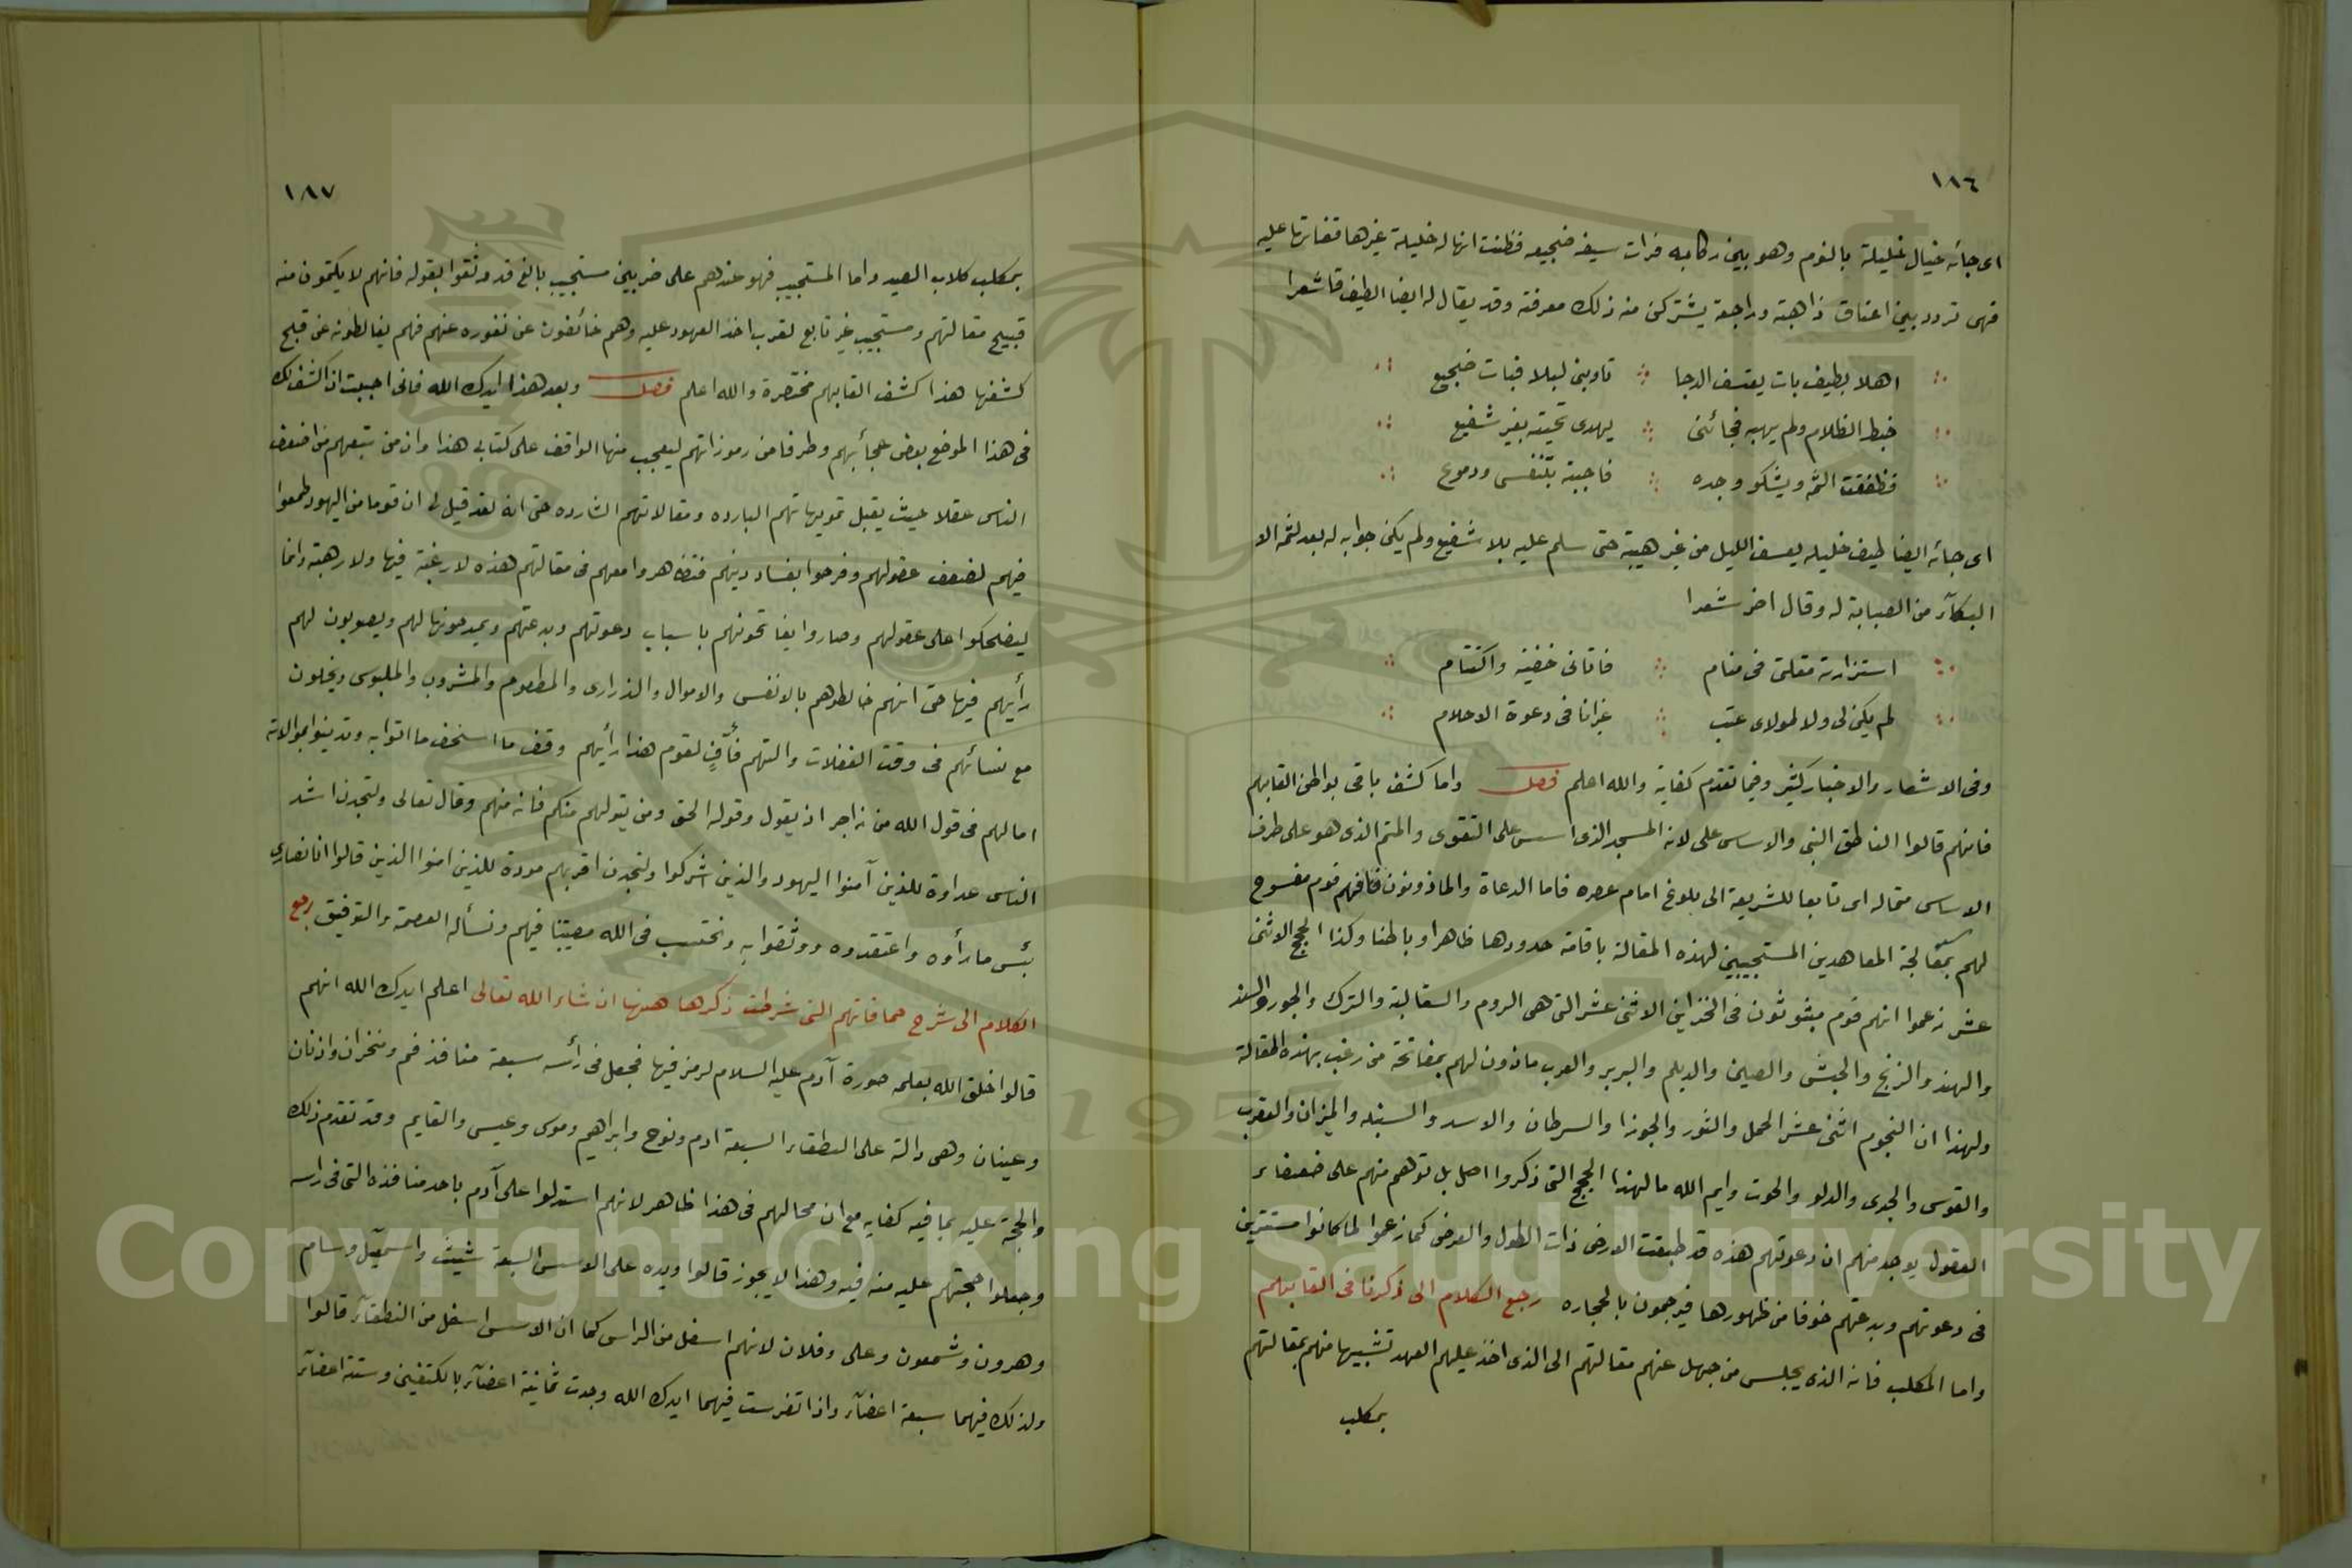 ١٨٦
اى جائه خيال خليلة بالنوم وهو بين ركابه فرات سيفه ضجيعه فظنت انها له خليلة غيرها قفاتها عليه
فهى تردد بين اعناق ذاهبة وراجعة يشتركن منه ذلك معرفته وقد يقال له ايضا الطيف قا شعرا
اهلا بطيف بات يعتسف الدجا تاوبنى ليلا فبات ضجيع
خبط الظلام ولم يهبه فجائنى يهدى تحيته بغير شفيع
فطفقت الثمه ويشكو وجده فاجبته بتنفس ودموع
اى جائه ايضا طيف خليله يعسف الليل من غير هيبة حتى سلم عليه بلا شفيع ولم يكن جوابه له بعد لثمه الا
البكآء من الصبابة له وقال اخر شعرا
استزارته مقلتى فى منام فاتانى خفية واكتتام
لم يكن لى ولا لمولاى عتب غيرانا فى دعوة الاحلام
وفى الاشعار والاخبار كثير وفيما تقدم كفاية والله اعلم فصل واما كشف باقى بواطن القابهم
فانهم قالوا الناطق النبى والاساس على لانه المسجد الذى اسس على التقوى والمتم الذى هو على طرف
الاساس متماله اى تابعا للشريعة الى بلوغ امام عصره فاما الدعاة والماذونون فانهم قوم مفسوح
لهم بمعالجة المعاهدين المستجيبين لهذه المقالة باقامة حدودها ظاهرا وباطنا وكذا الحجج الاثنى
عشر زعموا انهم قوم مبثوثون فى الجزاين الاثنى عشر التى هى الروم والسقالبة والترك والجور والسند
والهند والزنج والحبش والصين والديلم والبربر والعرب ماذون لهم بمفاتحة من رغب بهذه المقالة
ولهذا ان النجوم اثنى عشر الحمل والثور والجوزا والسرطان والاسد والسنبله والميزان والعقرب
والقوس والجدى والدلو والحوت وايم الله ما لهذا الحجج التى ذكروا اصل بل توهم منهم على ضعفاء
العقول يوجد منهم ان دعوتهم هذه قد طبقت الارض ذات الطول والعرض كما زعموا لما كانوا مستترين
فى دعوتهم وبدعتهم خوفا من ظهورها فيرجمون بالحجاره رجع الكلام الى ذكرنا فى القابهم
واما المكلب فانه الذى يجلس من جهل عنهم مقالتهم الى الذى اخذ عليهم العهد تشبيها منهم بمقالتهم
بمكلب
١٨٧
بمكلب كلاب الصيد واما المستجيب فهو عندهم على ضربين مستجيب بالغ قد وثقوا بقوله فانهم لا يكتمون منه
قبيح مقالتهم ومستجيب غير تابع لقرب اخذ العهود عليه وهم خائفون عن نفوره عنهم فهم يغالطونه عن قبح
كشفها هذا كشف القابهم مختصرة والله اعلم فصل وبعد هذا ايدك الله فانى احببت ان اكشف لك
فى هذا الموضع بعض عجائبهم وطرفا من رموزاتهم ليعجب منها الواقف على كتابى هذا وان من يتبعهم من اضعف
الناس عقلا حيث يقبل تمويهاتهم البارده ومقالاتهم الشارده حتى انه لقد قيل لى ان قوما من اليهود طمعوا
فيهم لضعف عقولهم وفرحوا بفساد دينهم فتظاهروا معهم فى مقالتهم هذه لا رغبة فيها ولا رهبة وانما
ليضحكوا على عقولهم وصاروا يفاتحونهم باسباب دعوتهم وبدعتهم ويمدحونها لهم ويصوبون لهم
رأيهم فيها حتى انهم خالطوهم بالانفس والاموال والذرارى والمطعوم والمشروب والملبوس ويخلون
مع نسائهم فى وقت الغفلات والتهم فأفٍ لقوم هذا رأيهم وقف ما اسخف ما اتوا به وتدينوا بموالاته
امالهم فى قول الله من زاجر اذ يقول وقوله الحق ومن يتولهم منكم فانه منهم وقال تعالى ولتجدن اشد
الناس عداوة للذين آمنوا اليهود والذين اشركوا ولتجدن اقربهم مودة للذين امنوا الذين قالوا انا نصارى
بئس ما رأوه واعتقدوه ووثقوا به ونحتسب فى الله مصيبتنا فيهم ونسأله العصمة والتوفيق رجع
الكلام الى شرح حماقاتهم التى شرطت ذكرها ههنا ان شاء الله تعالى اعلم ايدك الله انهم
قالوا خلق الله بعلمه صورة آدم عليه السلام لرمز فيها فجعل فى رأسه سبعة منافذ فم ومنخران واذنان
وعينان وهى دالة على النطقاء السبعة ادم ونوح وابراهيم وموسى وعيسى والقايم وقد تقدم ذلك
والحجة عليه بما فيه كفايه مع ان محالهم فى هذا ظاهر لانهم استدلوا على آدم باحد منافذه التى فى راسه
وجعلوا حجتهم عليه منه فيه وهذا لا يجوز قالوا ويده على الاسس السبعة شيث واسمعيل وسام
وهرون وشمعون وعلى وفلان لانهم اسفل من الراس كما ان الاسس اسفل من النطقآء قالوا
ولذلك فيهما سبعة اعضآء واذا تفرست فيهما ايدك الله وجدت ثمانية اعضآء بالكتفين وستة اعضآء
Copyright © King Saud University
1957